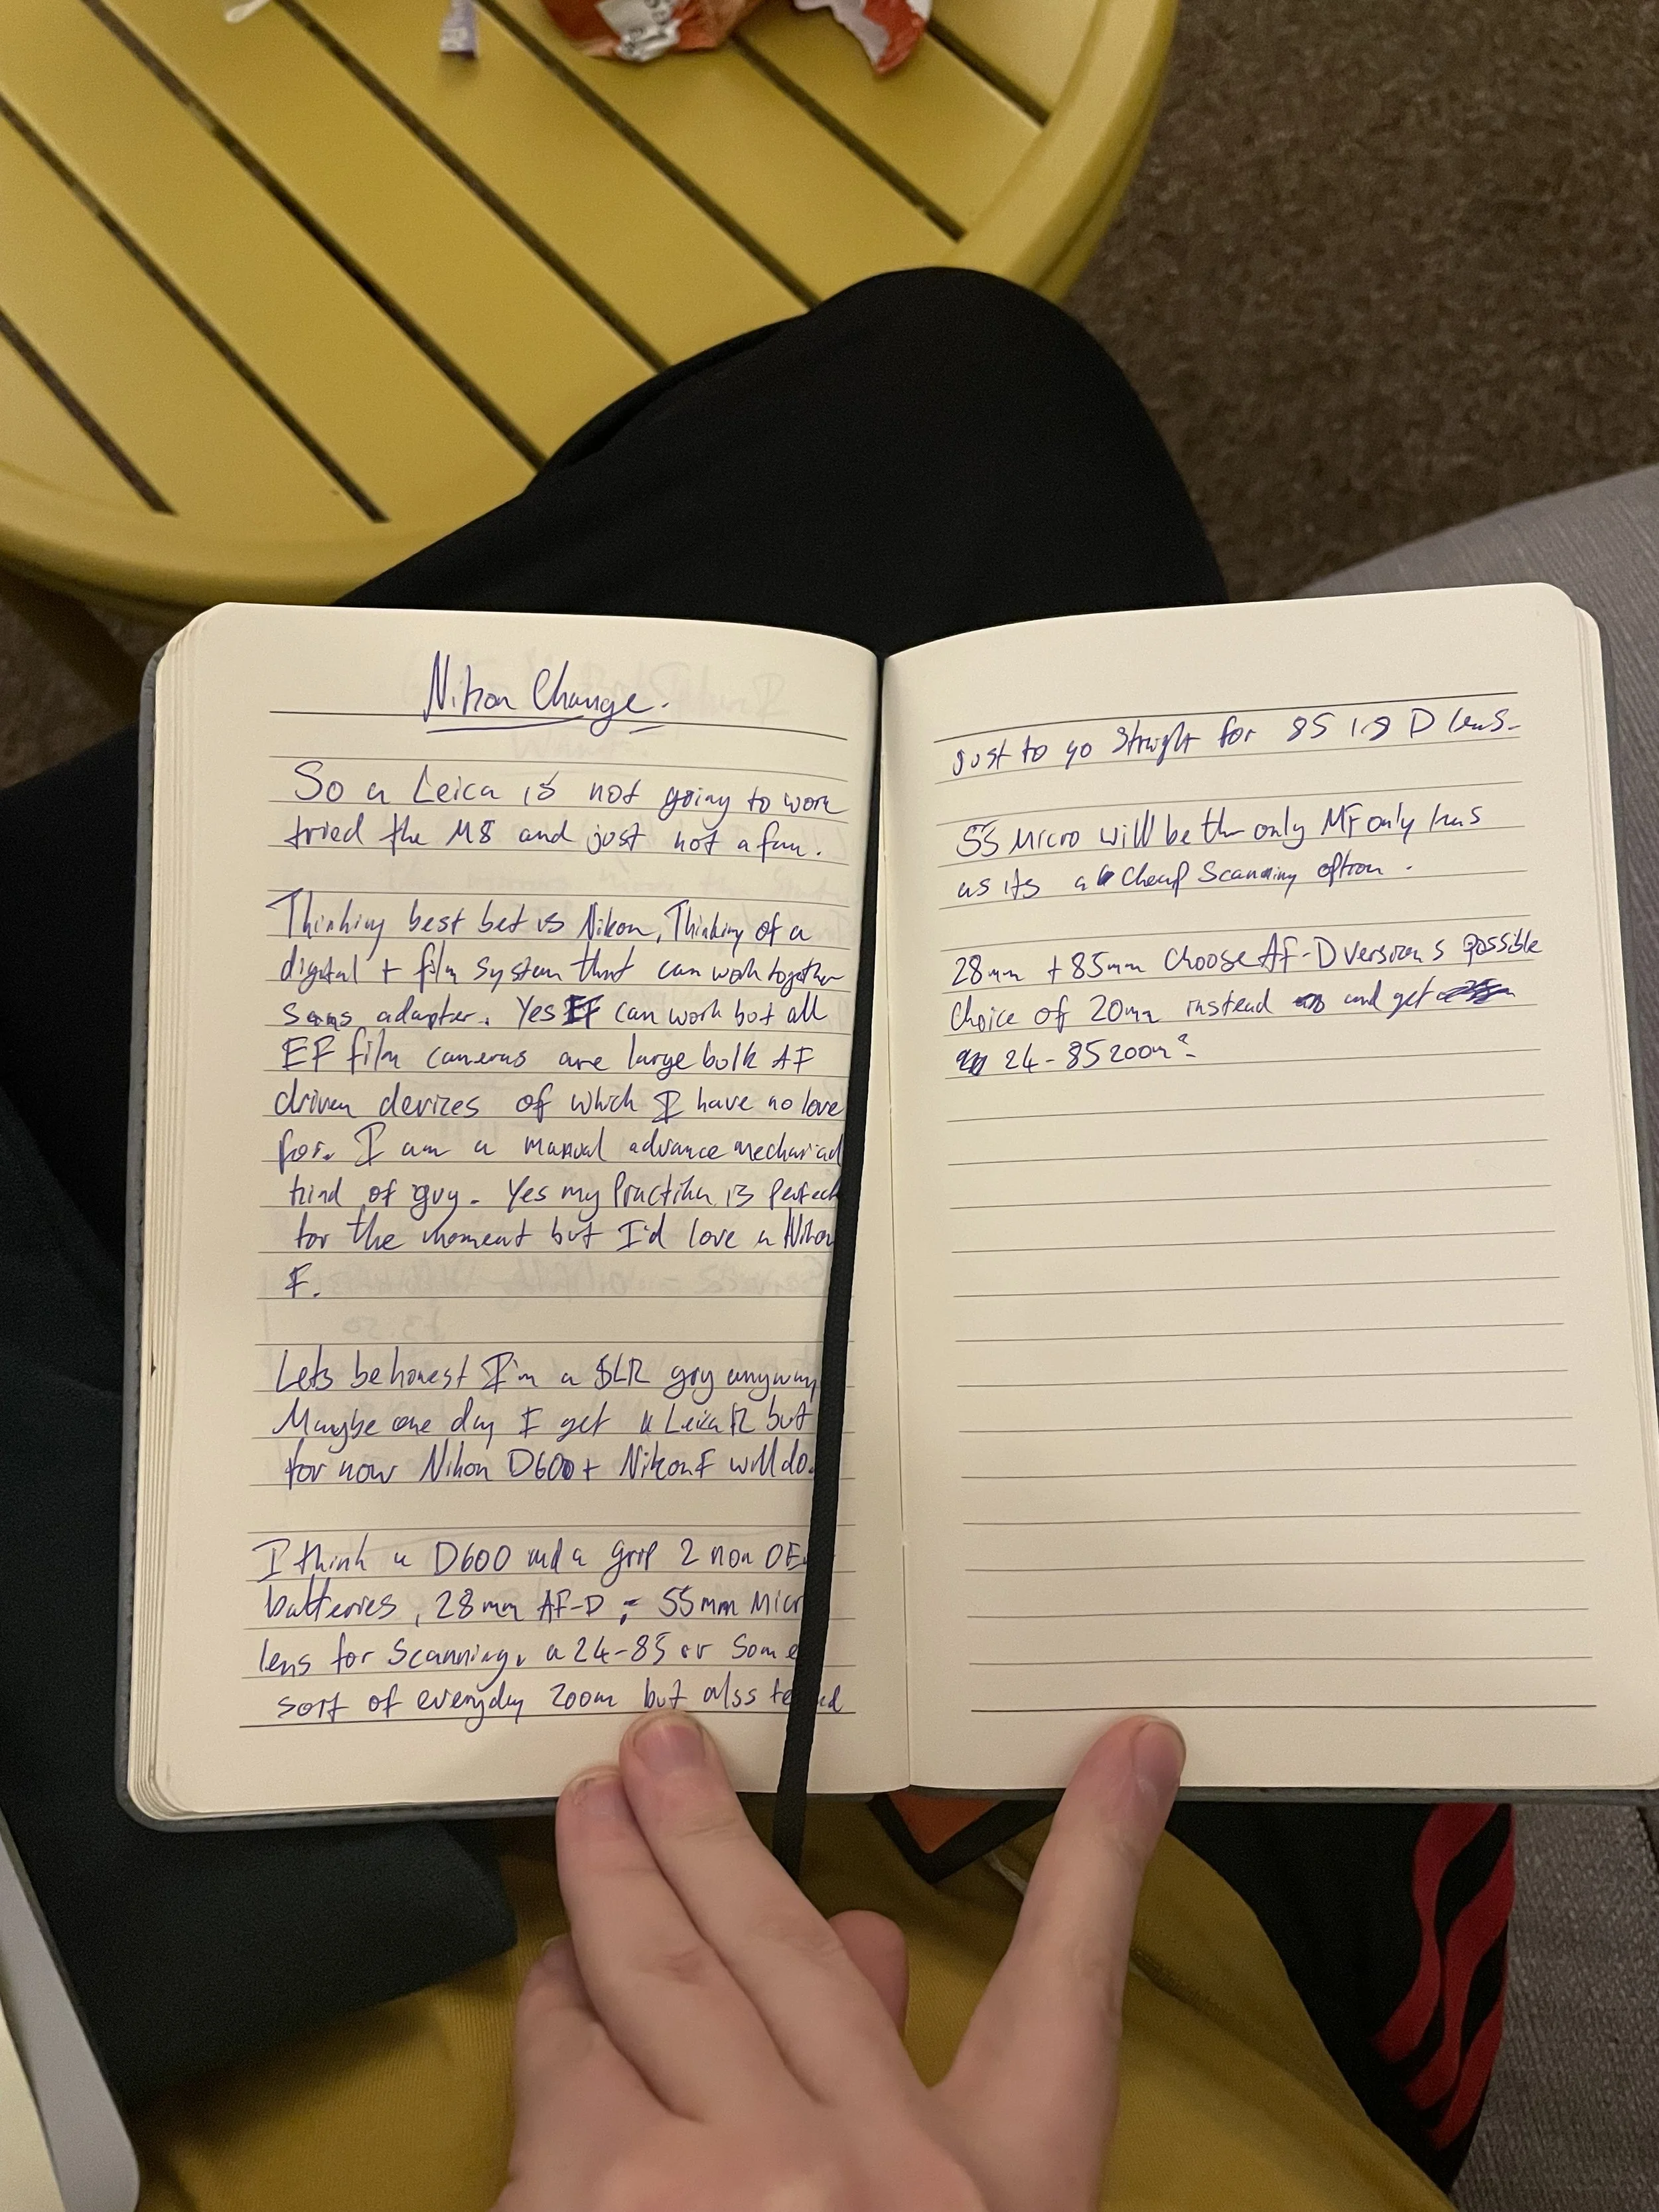 Nikon Change.
So a Leica is not going to work
tried the M8 and just not a fan.
Thinking best bet is Nikon, Thinking of a
digital + film system that can work together
sans adapter. Yes EF can work but all
EF film cameras are large bulk AF
driven devices of which I have no love
for. I am a manual advance mechanical
kind of guy. Yes my Practika is perfect
for the moment but I'd love a Nikon
F.
Lets be honest I'm a SLR guy anyway
Maybe one day I get a Leica R but
for now Nikon D600 + Nikon F will do.
I think a D600 and a grip 2 non OE
batteries, 28mm AF-D, 55mm Micr
lens for Scanning, a 24-85 or some
sort of everyday zoom but also
just to go straight for 85 1.8 D lens.
55 Micro will be the only MF only lens
as its a cheap Scanning option.
28mm + 85mm choose AF-D versions possible
Choice of 20mm instead and get
24-85 zoom?